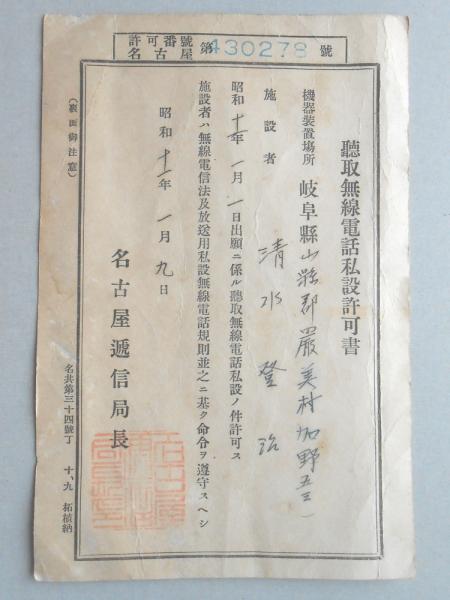 許可番號
名古屋
第430278號
聽取無線電話私設許可書
機器裝置場所 岐阜縣山縣郡嚴美村加野五三一
施設者 清水登治
昭和十一年一月一日出願ニ係ル聽取無線電話私設ノ件許可ス
施設者ハ無線電信法及放送用私設無線電話規則並之ニ基ク命令ヲ遵守スヘシ
昭和十一年一月九日
名古屋遞信局長
名共第三十四號丁 十、九 拓植納
(裏面御注意)